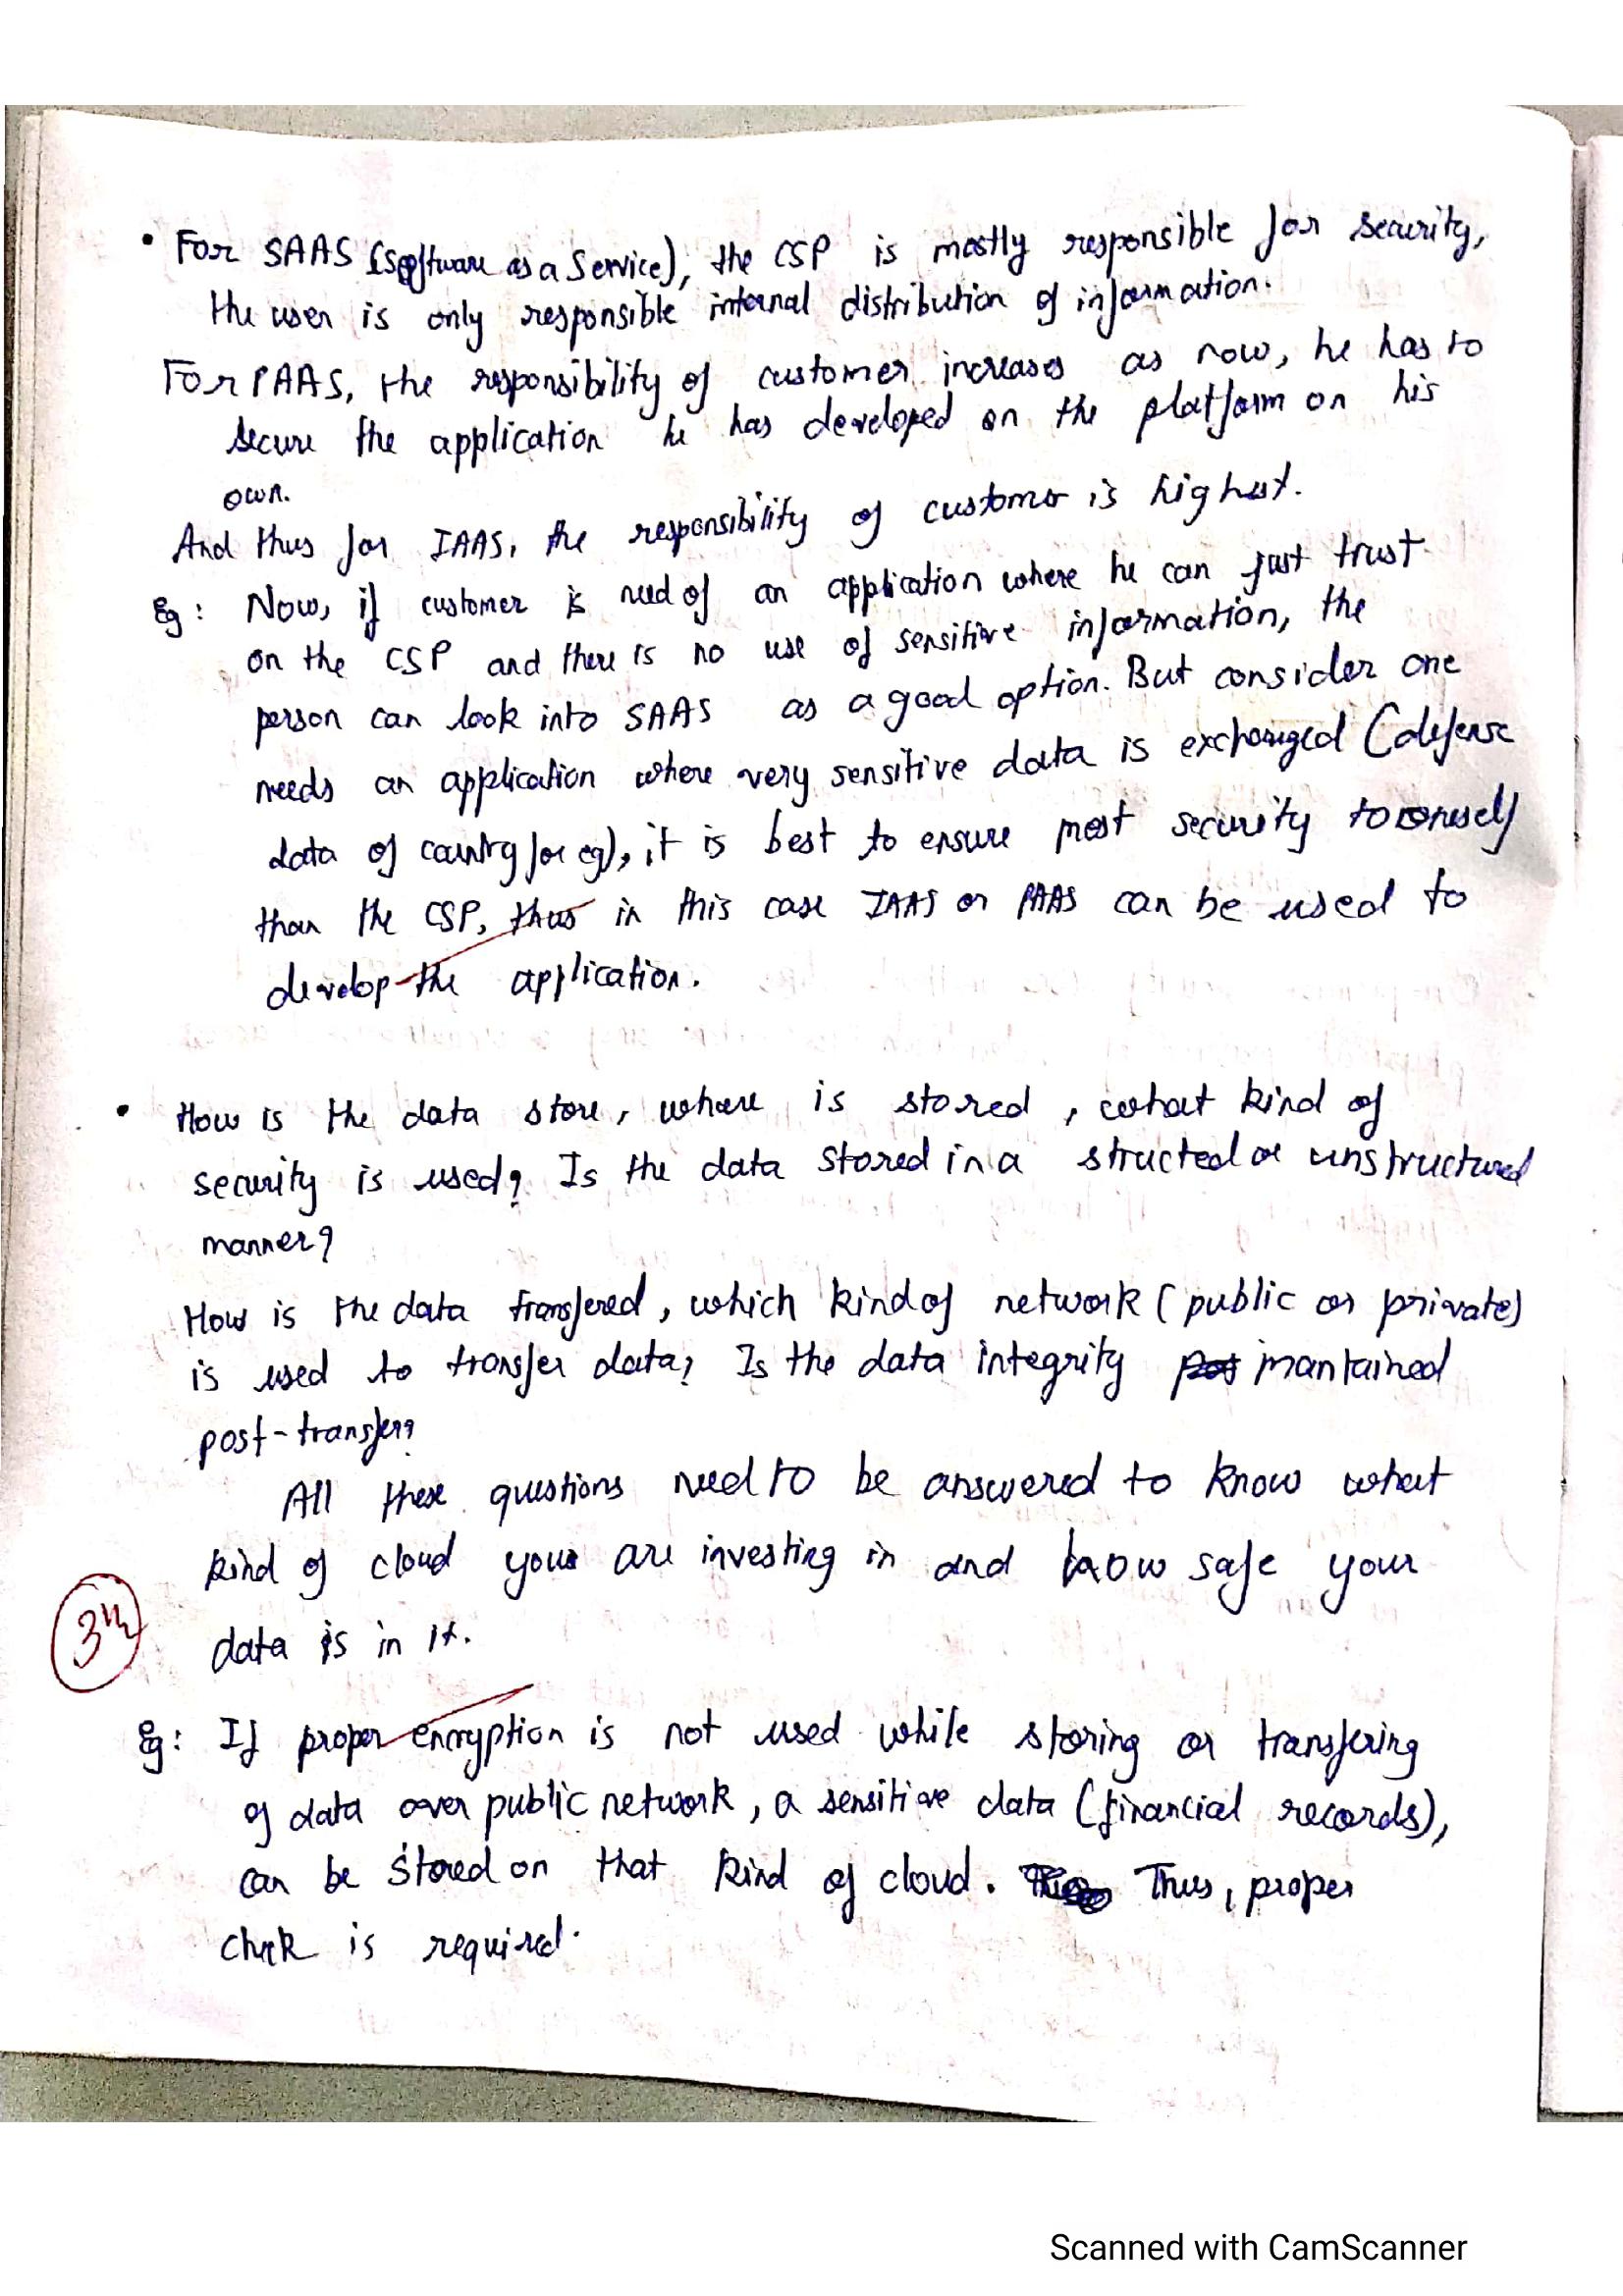 • For SAAS (Software as a Service), the CSP is mostly responsible for security,
the user is only responsible internal distribution of information.
For PAAS, the responsibility of customer increases as now, he has to
secure the application he has developed on the platform on his
own.
And thus for IAAS, the responsibility of customer is highest.
Eg: Now, if customer is need of an application where he can just trust
on the CSP and there is no use of sensitive information, the
person can look into SAAS as a good option. But consider one
needs an application where very sensitive data is exchanged (defense
data of country for eg), it is best to ensure most security to oneself
than the CSP, thus in this case IAAS or PAAS can be used to
develop the application.
• How is the data store, where is stored, what kind of
security is used? Is the data stored in a structed or unstructured
manner?
How is the data transfered, which kind of network (public or private)
is used to transfer data? Is the data integrity mantained
post-transfer?
All these questions need to be answered to know what
kind of cloud your are investing in and how safe your
data is in it.
Eg: If proper encryption is not used while storing or transfering
of data over public network, a sensitive data (financial records),
can be stored on that kind of cloud. Thus, proper
check is required.
Scanned with CamScanner